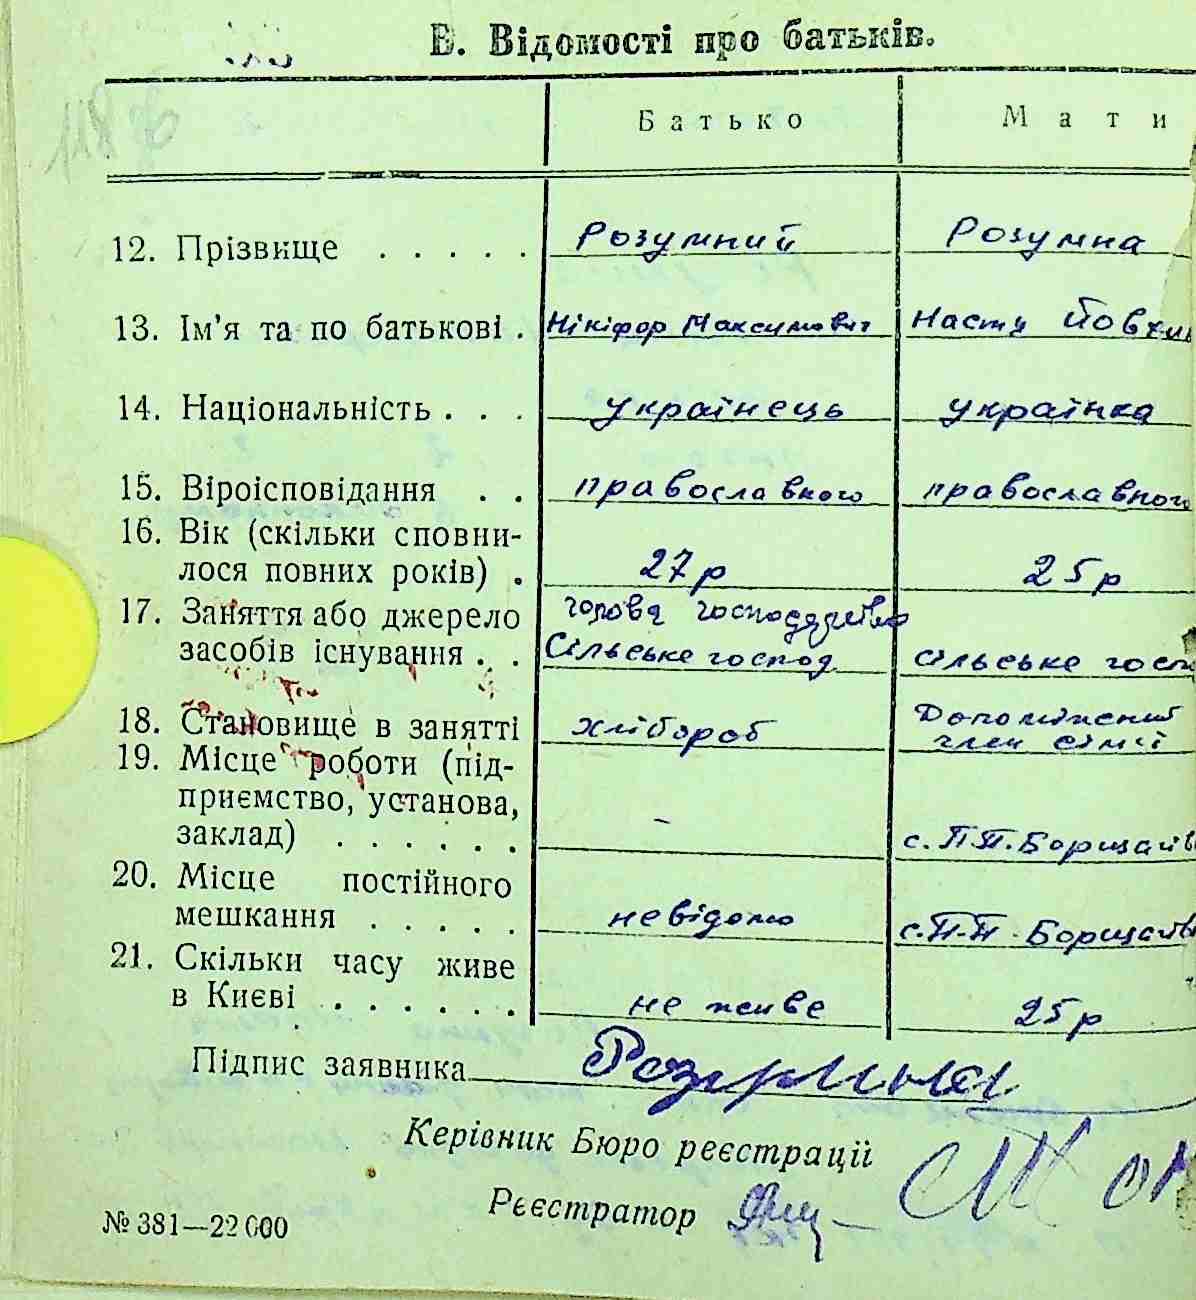 В. Відомості про батьків.
Батько Мати
12. Прізвище . . . . . Розумний Розумна
13. Ім'я та по батькові . Нікіфор Максимович Настя
14. Національність . . . українець українка
15. Віроісповідання . . православного православного
16. Вік (скільки сповни-
лося повних років) . 27 р 25 р
17. Заняття або джерело голова господарства
засобів існування . . Сільське господ сільське госп
18. Становище в занятті хлібороб Допоміжний
член сімії
19. Місце роботи (під-
приємство, установа,
заклад) . . . . . . - с. П.П. Борщагів
20. Місце постійного
мешкання . . . . . невідомо с. П.П. Борщагів
21. Скільки часу живе
в Києві . . . . . . не живе 25 р
Підпис заявника Розумная
Керівник Бюро реєстрації
Реєстратор
№ 381—22 000